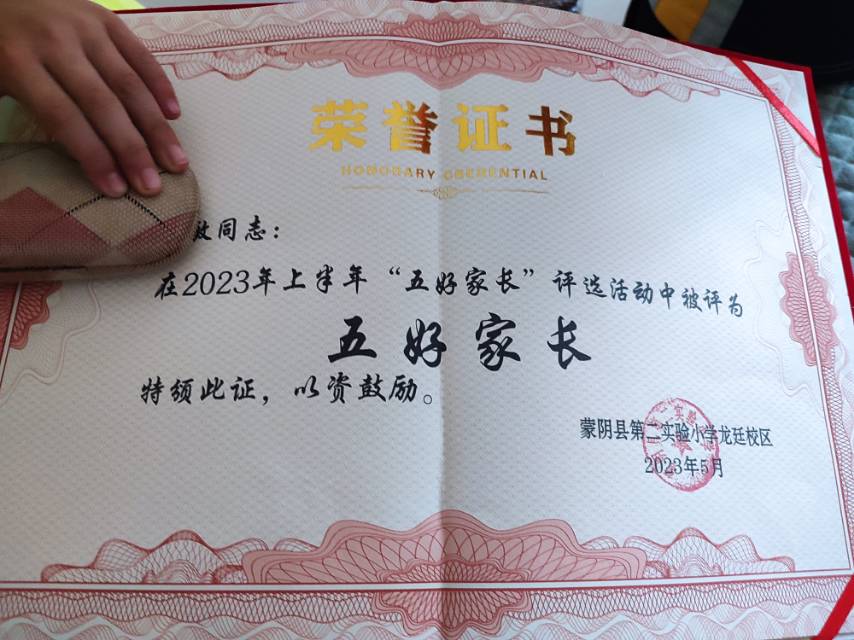 荣誉证书
HONORARY CREDENTIAL
同志：
在2023年上半年“五好家长”评选活动中被评为
五好家长
特颁此证，以资鼓励。
蒙阴县第二实验小学龙廷校区
2023年5月